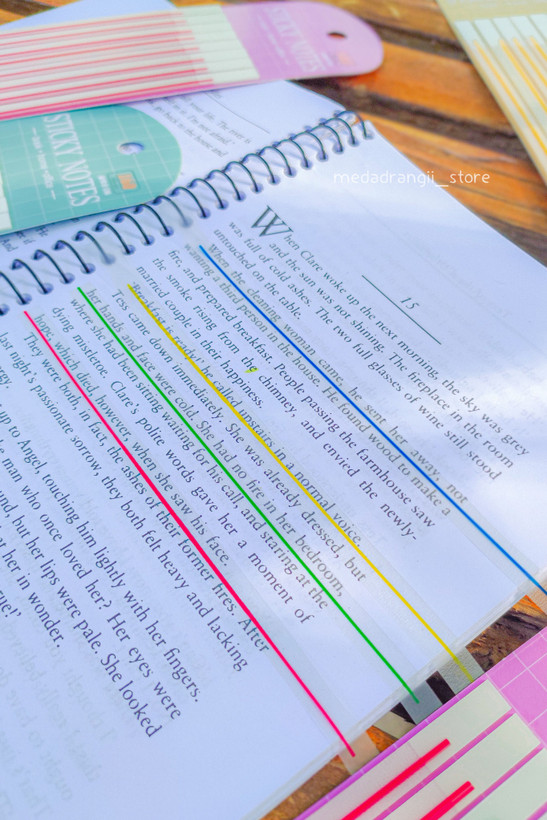 STICKY NOTES
STICKY NOTES
medadrangii_store
15
When Clare woke up the next morning, the sky was grey
and the sun was not shining. The fireplace in the room
was full of cold ashes. The two full glasses of wine still stood
untouched on the table.
When the cleaning woman came, he sent her away, not
wanting a third person in the house. He found wood to make a
fire, and prepared breakfast. People passing the farmhouse saw
the smoke rising from the chimney, and envied the newly-
married couple in their happiness.
'Breakfast is ready!' he called upstairs in a normal voice.
Tess came down immediately. She was already dressed, but
her hands and face were cold. She had no fire in her bedroom,
where she had been sitting waiting for his call, and staring at the
dying mistletoe. Clare's polite words gave her a moment of
hope, which died, however, when she saw his face.
They were both, in fact, the ashes of their former fires. After
last night's passionate sorrow, they both felt heavy and lacking
up to Angel, touching him lightly with her fingers.
man who once loved her? Her eyes were
but her lips were pale. She looked
at her in wonder.